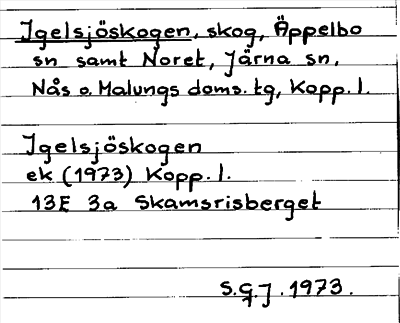 Igelsjöskogen, skog, Äppelbo
sn samt Noret, Järna sn,
Nås o. Malungs doms. tg, Kopp. l.
Igelsjöskogen
ek (1973) Kopp. l.
13E 3a Skamsrisberget
S.G.J. 1973.